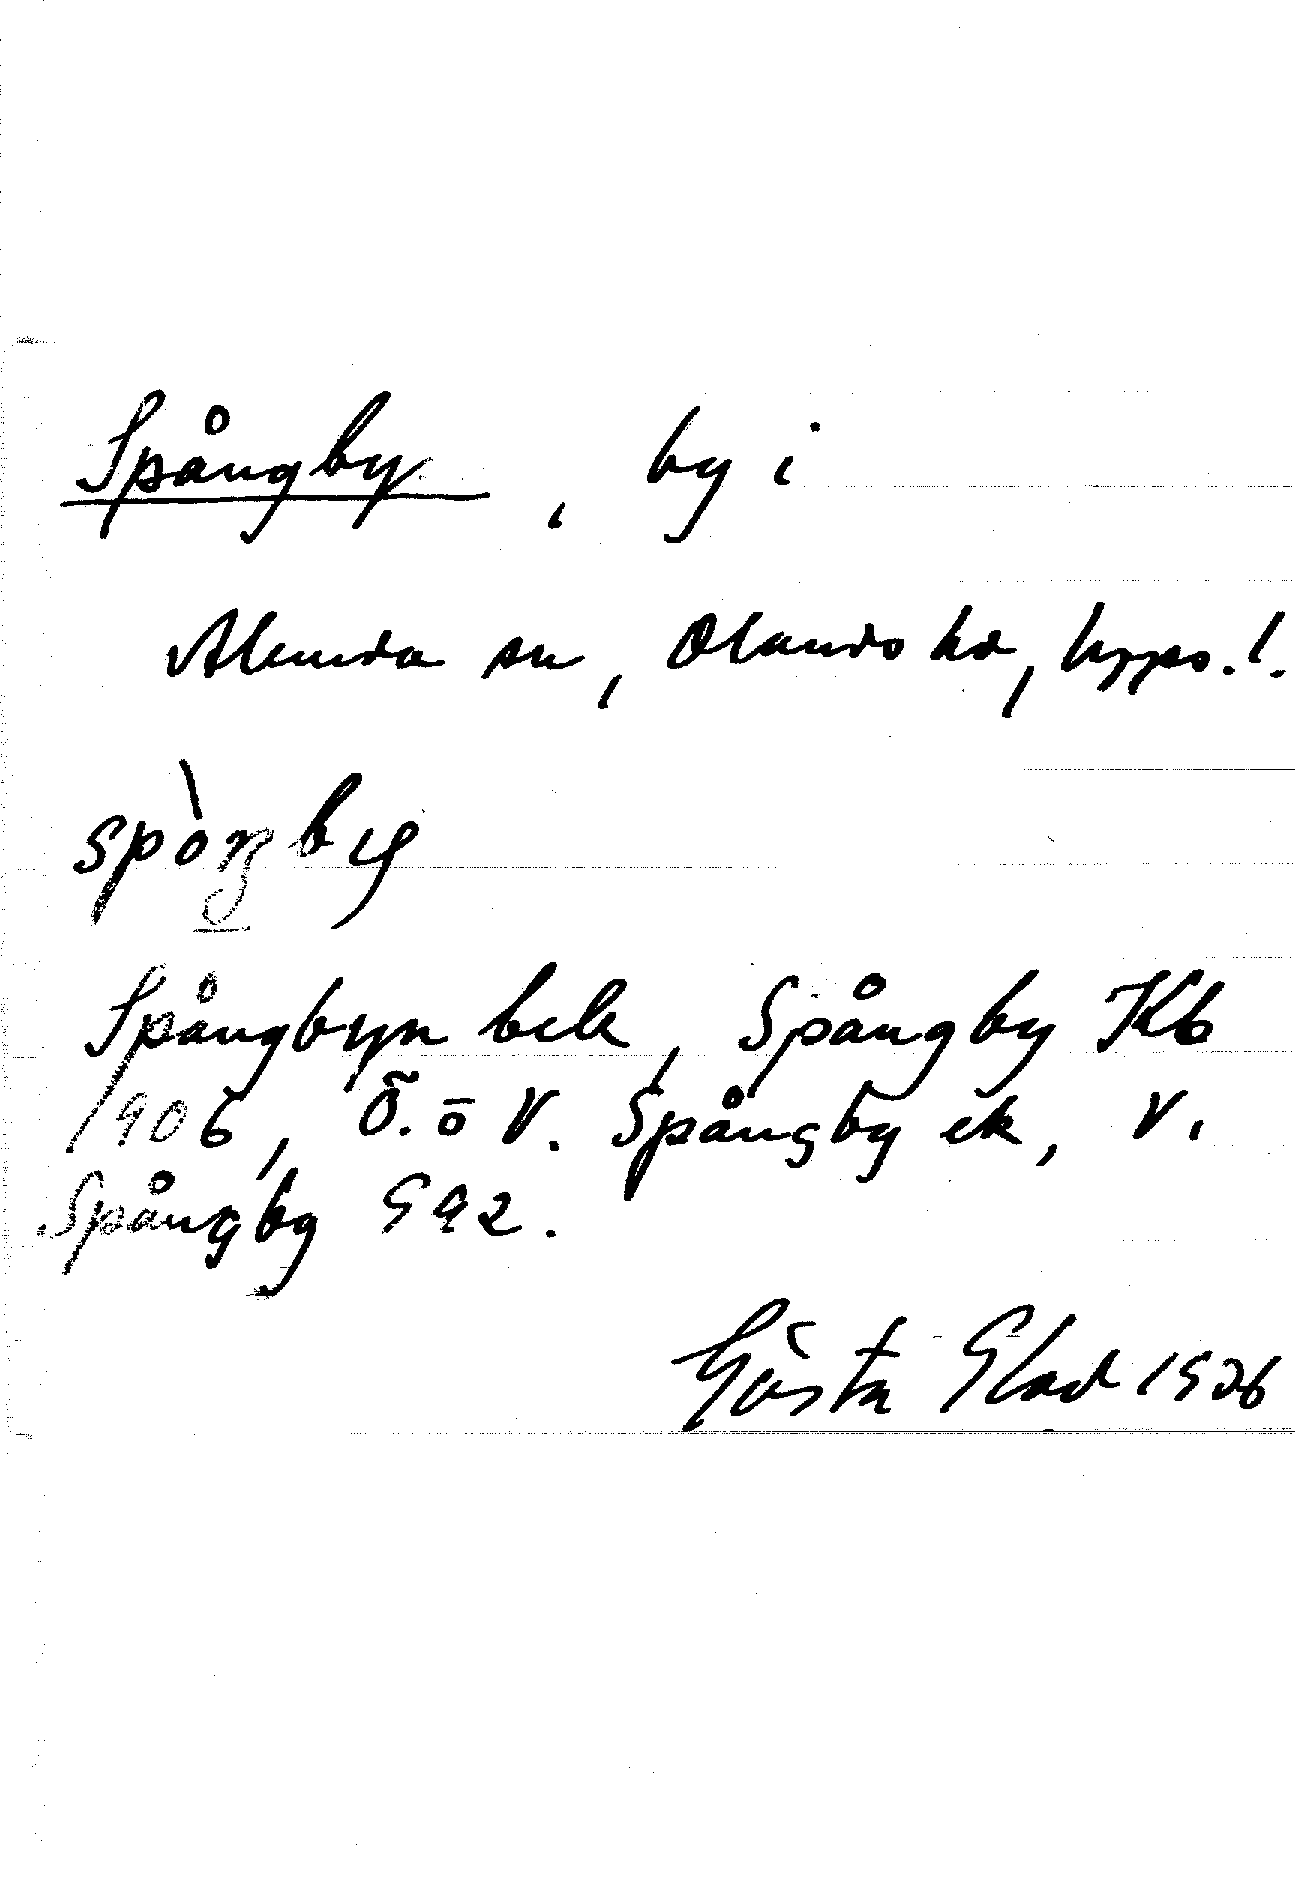 Spångby, by i
Alunda sn, Olands hd, Upps. l.
spòŋby
Spångbyn bek, Spångby Kb
1906, Ö. o V. Spångby ek, V.
Spångby G92.
Gösta Glad 1926